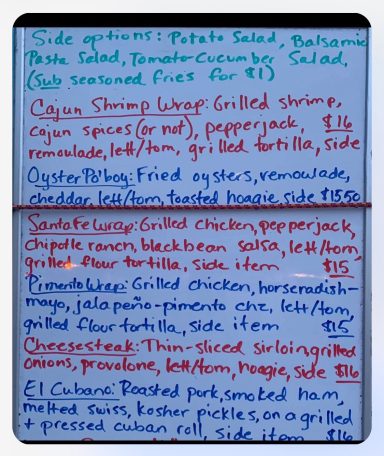 Side options: Potato Salad, Balsamic
Pasta Salad, Tomato-Cucumber Salad,
(Sub seasoned fries for $1)
Cajun Shrimp Wrap: Grilled shrimp,
cajun spices (or not), pepperjack, $16
remoulade, lett/tom, grilled tortilla, side
Oyster Po'boy: Fried oysters, remoulade,
cheddar, lett/tom, toasted hoagie, side $15.50
Santa Fe Wrap: Grilled chicken, pepperjack,
chipotle ranch, blackbean salsa, lett/tom,
grilled flour tortilla, side item $15
Pimento Wrap: Grilled chicken, horseradish-
mayo, jalapeño-pimento chz, lett/tom,
grilled flour tortilla, side item $15
Cheesesteak: Thin-sliced sirloin, grilled
onions, provolone, lett/tom, hoagie, side $16
El Cubano: Roasted pork, smoked ham,
melted swiss, kosher pickles, on a grilled
+ pressed cuban roll, side item $16